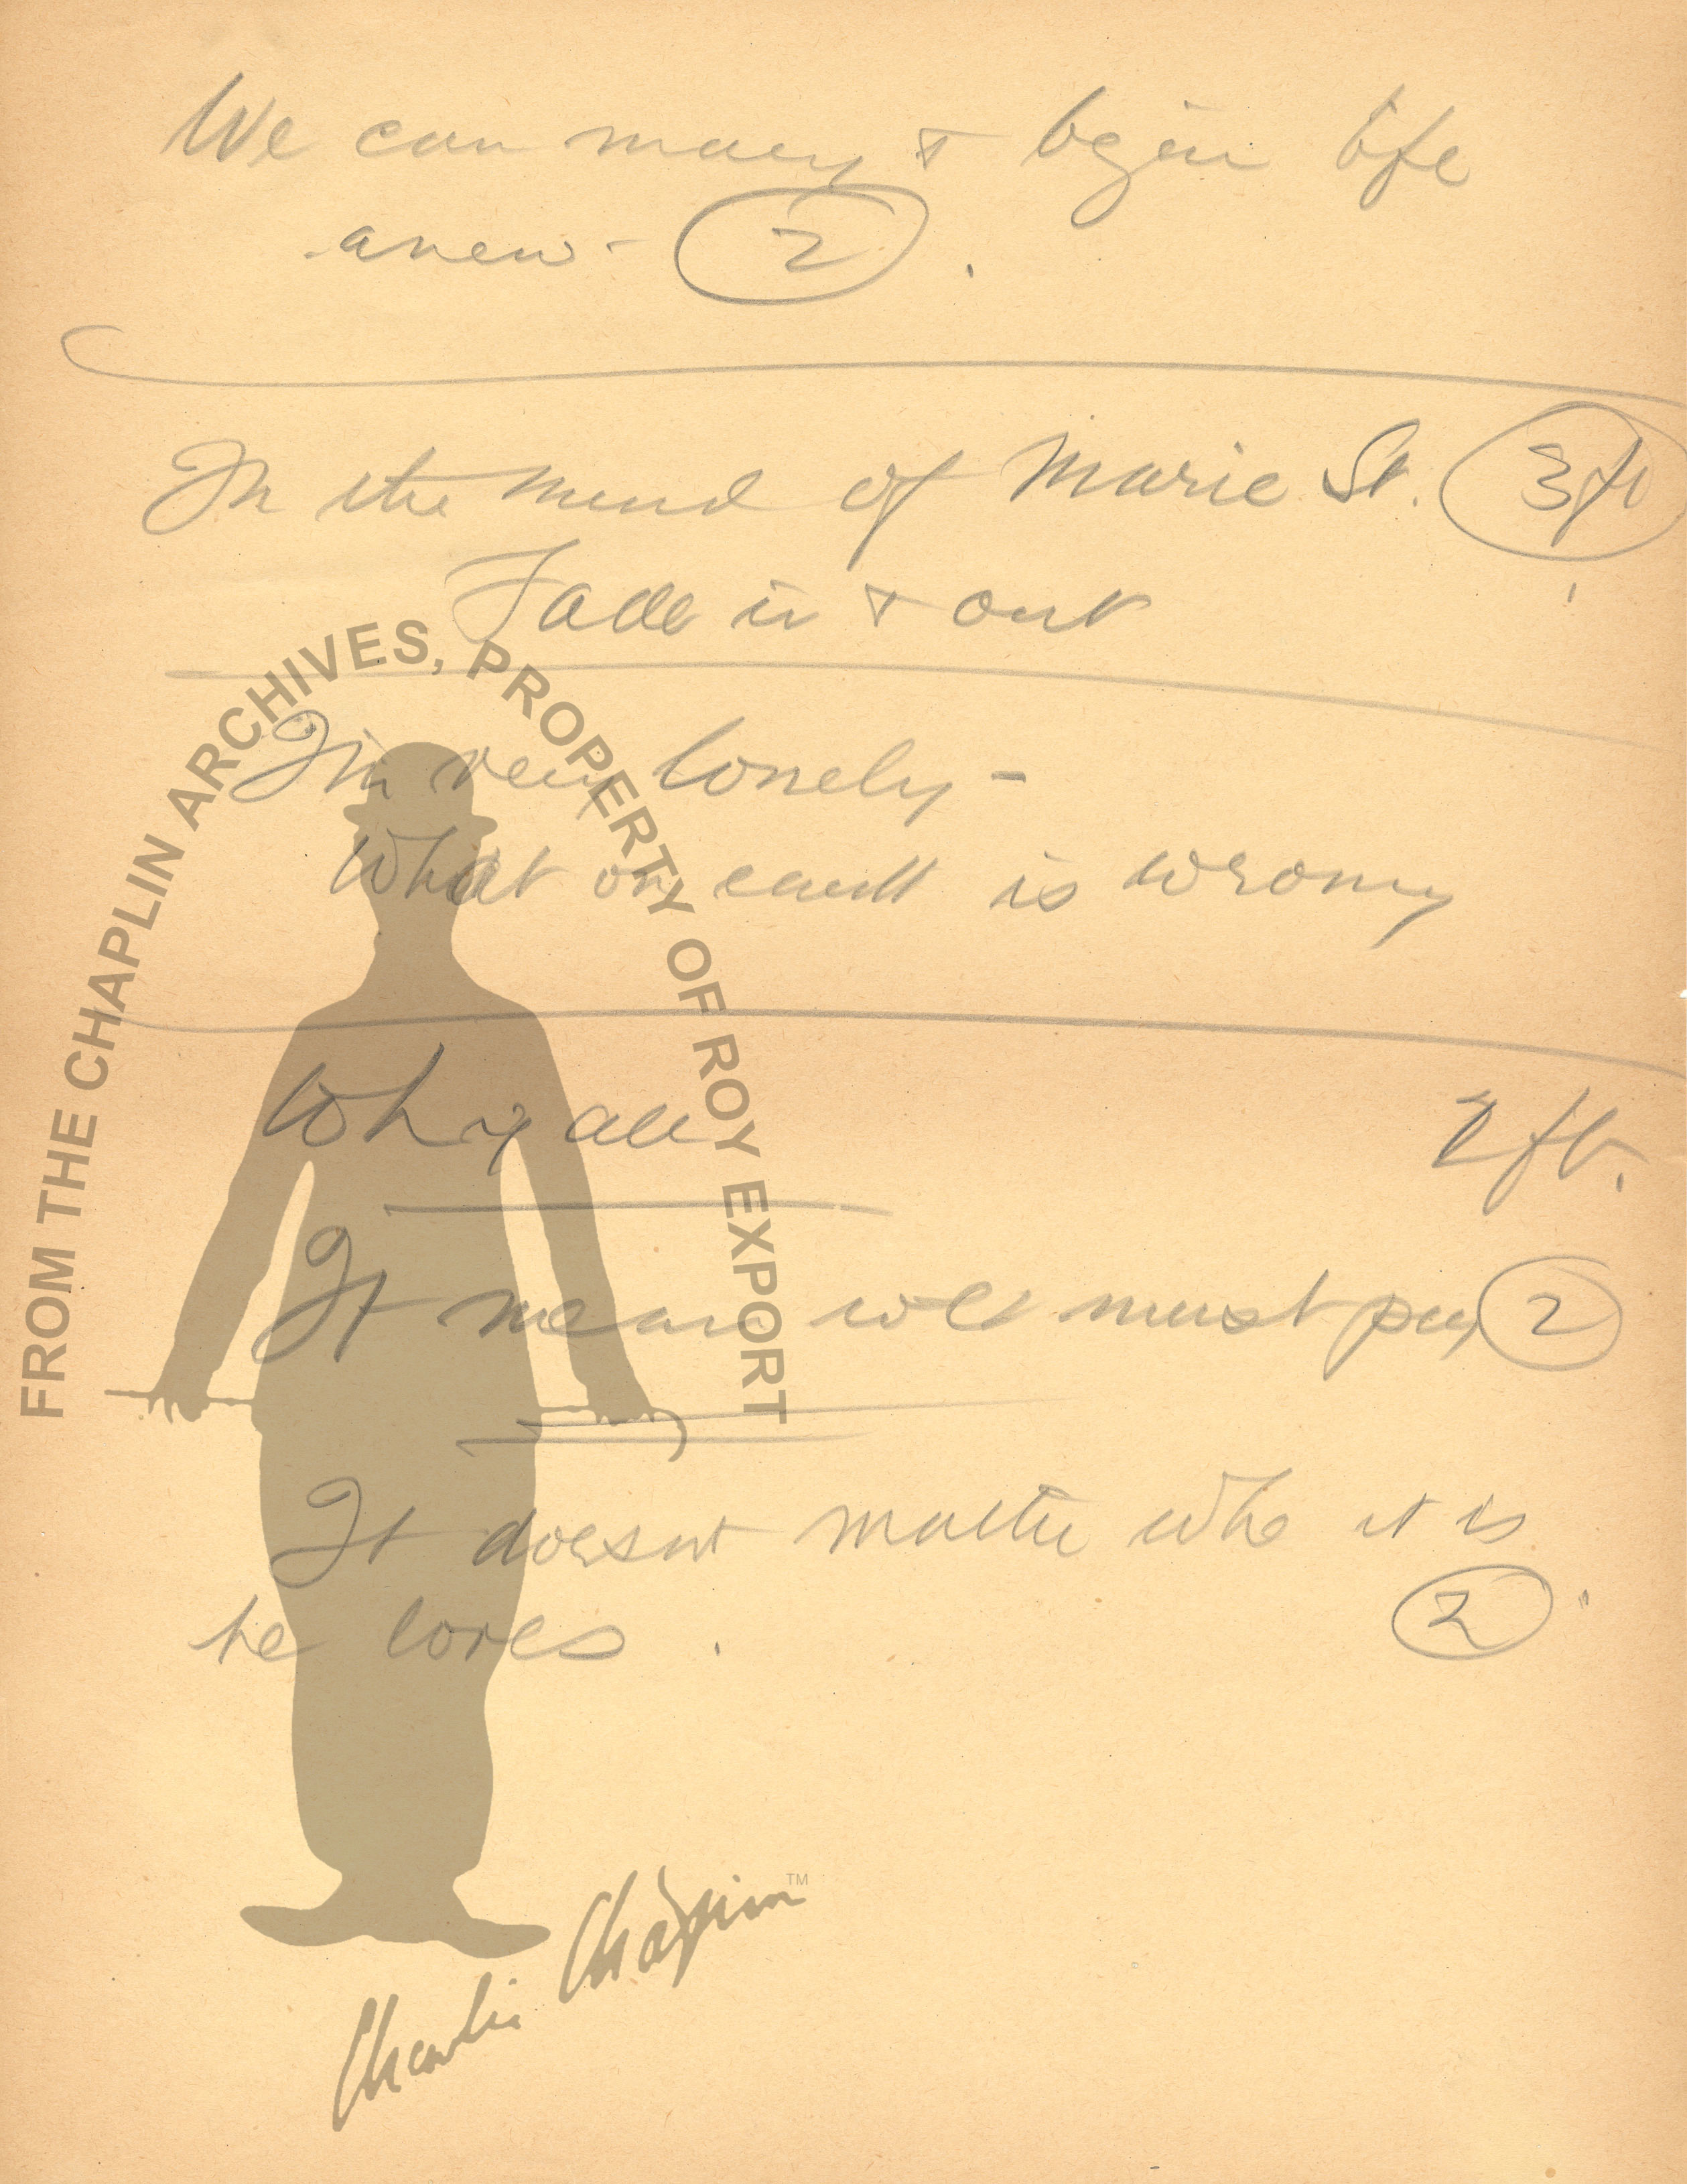 We can marry & begin life
anew - 2.
In the mind of Marie St. 3ft
Fade in & out
I'm very lonely -
What on earth is wrong
Why all
2 ft.
It means we must pay 2
It doesnt matter who it is
he loves.
2
FROM THE CHAPLIN ARCHIVES, PROPERTY OF ROY EXPORT
Charlie Chaplin™